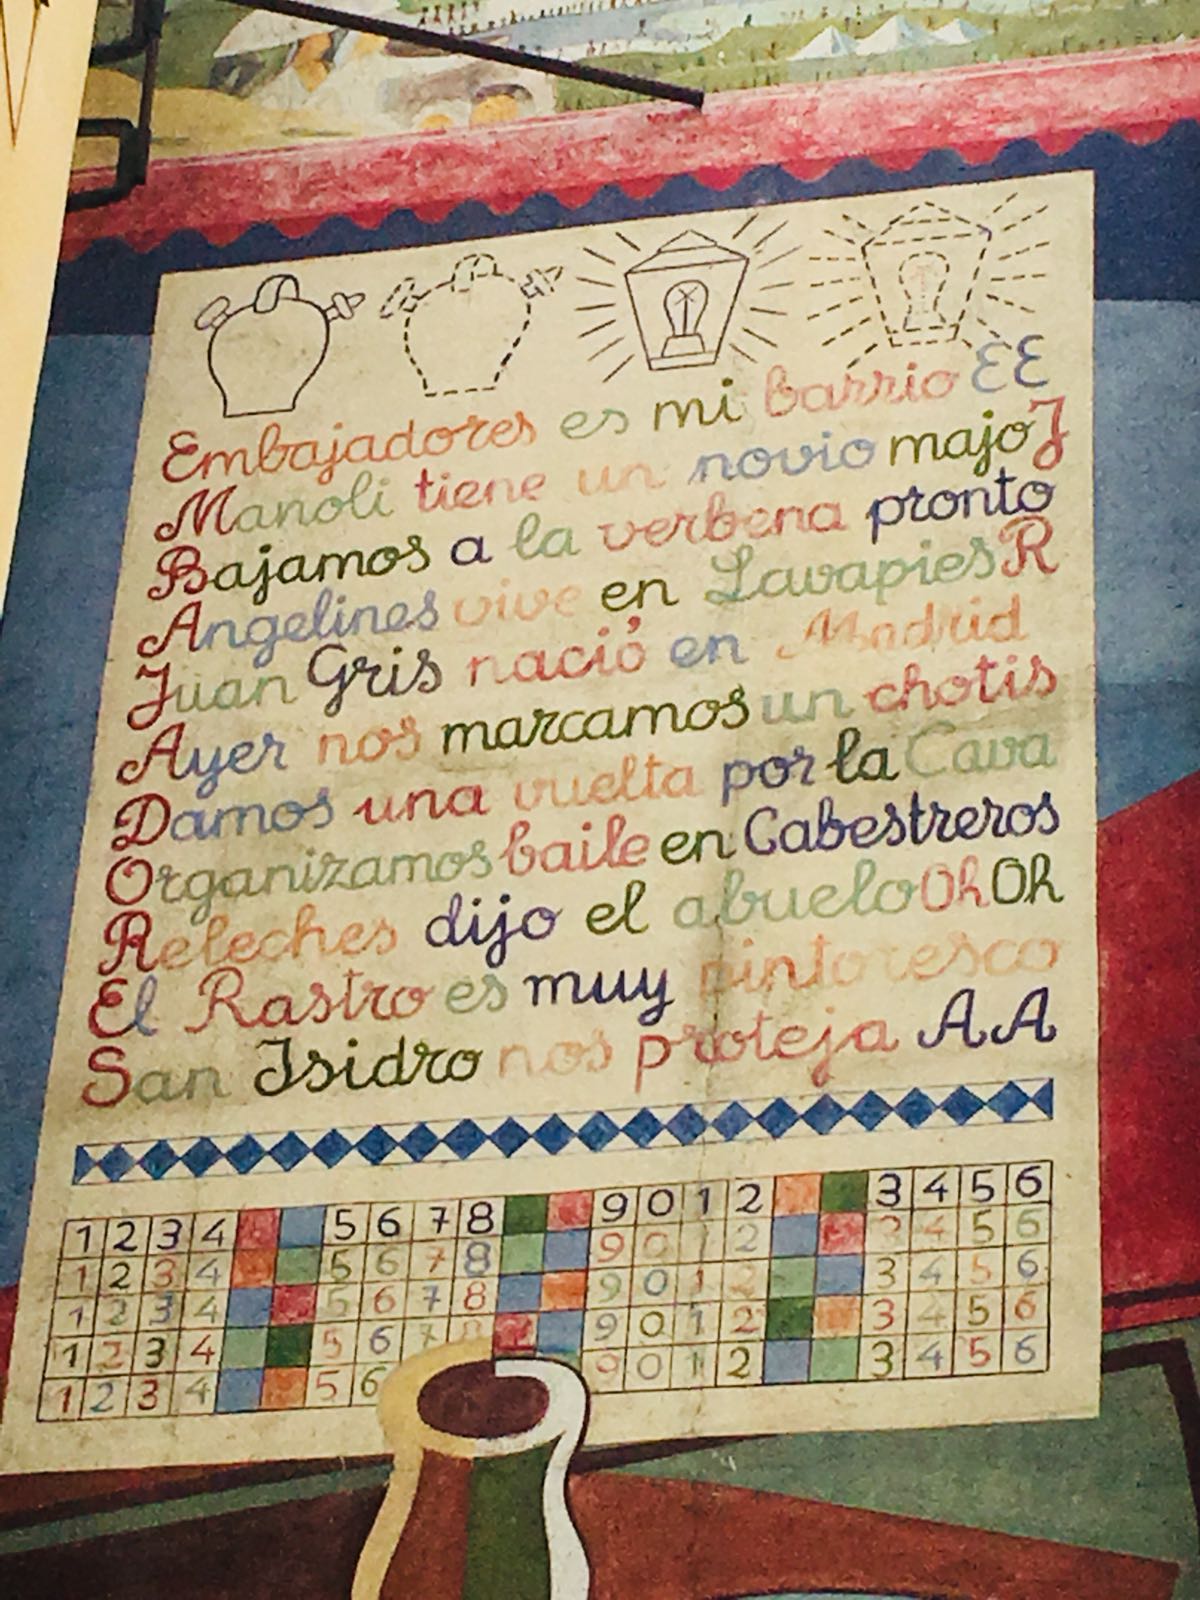 Embajadores es mi barrio EE
Manoli tiene un novio majo J
Bajamos a la verbena pronto
Angelines vive en Lavapies R
Juan Gris nació en Madrid
Ayer nos marcamos un chotis
Damos una vuelta por la Cava
Organizamos baile en Cabestreros
Releches dijo el abuelo Oh Oh
El Rastro es muy pintoresco
San Isidro nos proteja AA
1 2 3 4 5 6 7 8 9 0 1 2 3 4 5 6
1 2 3 4 5 6 7 8 9 0 1 2 3 4 5 6
1 2 3 4 5 6 7 8 9 0 1 2 3 4 5 6
1 2 3 4 5 6 7 8 9 0 1 2 3 4 5 6
1 2 3 4 5 6 9 0 1 2 3 4 5 6